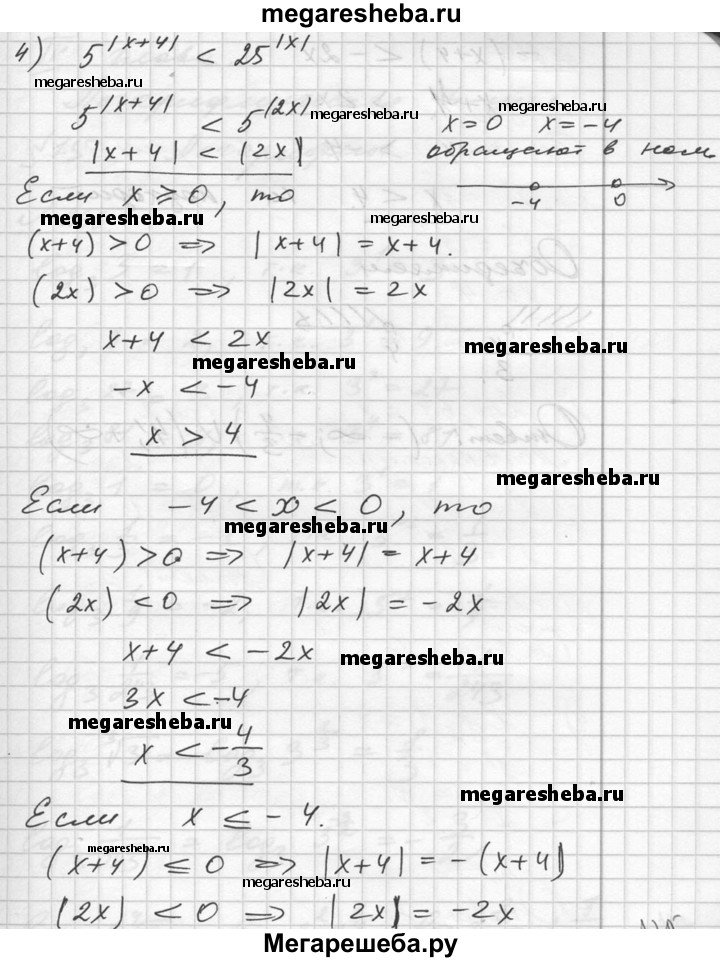 megaresheba.ru
4) 5^|x+4| < 25^|x|
megaresheba.ru
5^|x+4| < 5^|2x| megaresheba.ru
megaresheba.ru
x=0 x=-4
|x+4| < |2x|
обращают в ном.
Если x ⩾ 0, то
-4 0
megaresheba.ru megaresheba.ru
(x+4) > 0 => |x+4| = x+4.
(2x) > 0 => |2x| = 2x
x+4 < 2x
megaresheba.ru
megaresheba.ru
-x < -4
x > 4
megaresheba.ru
Если -4 < x < 0, то
megaresheba.ru
(x+4) > 0 => |x+4| = x+4
(2x) < 0 => |2x| = -2x
x+4 < -2x
megaresheba.ru
3x < -4
megaresheba.ru
x < -4/3
megaresheba.ru
Если x ≤ -4.
megaresheba.ru
(x+4) ≤ 0 => |x+4| = -(x+4)
megaresheba.ru
(2x) < 0 => |2x| = -2x
Мегарешеба.ру